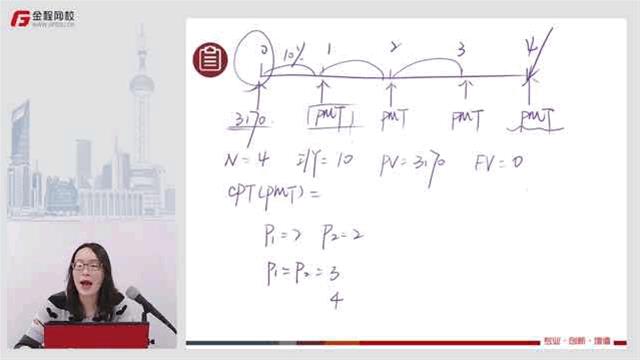 金程网校
WWW.GFEDU.CN
0 10% 1 2 3 4
3170 PMT PMT PMT PMT
N=4 I/Y=10 PV=3170 FV=0
CPT(PMT)=
P₁=2 P₂=2
P₁=P₂=3
4
专业·创新·增值